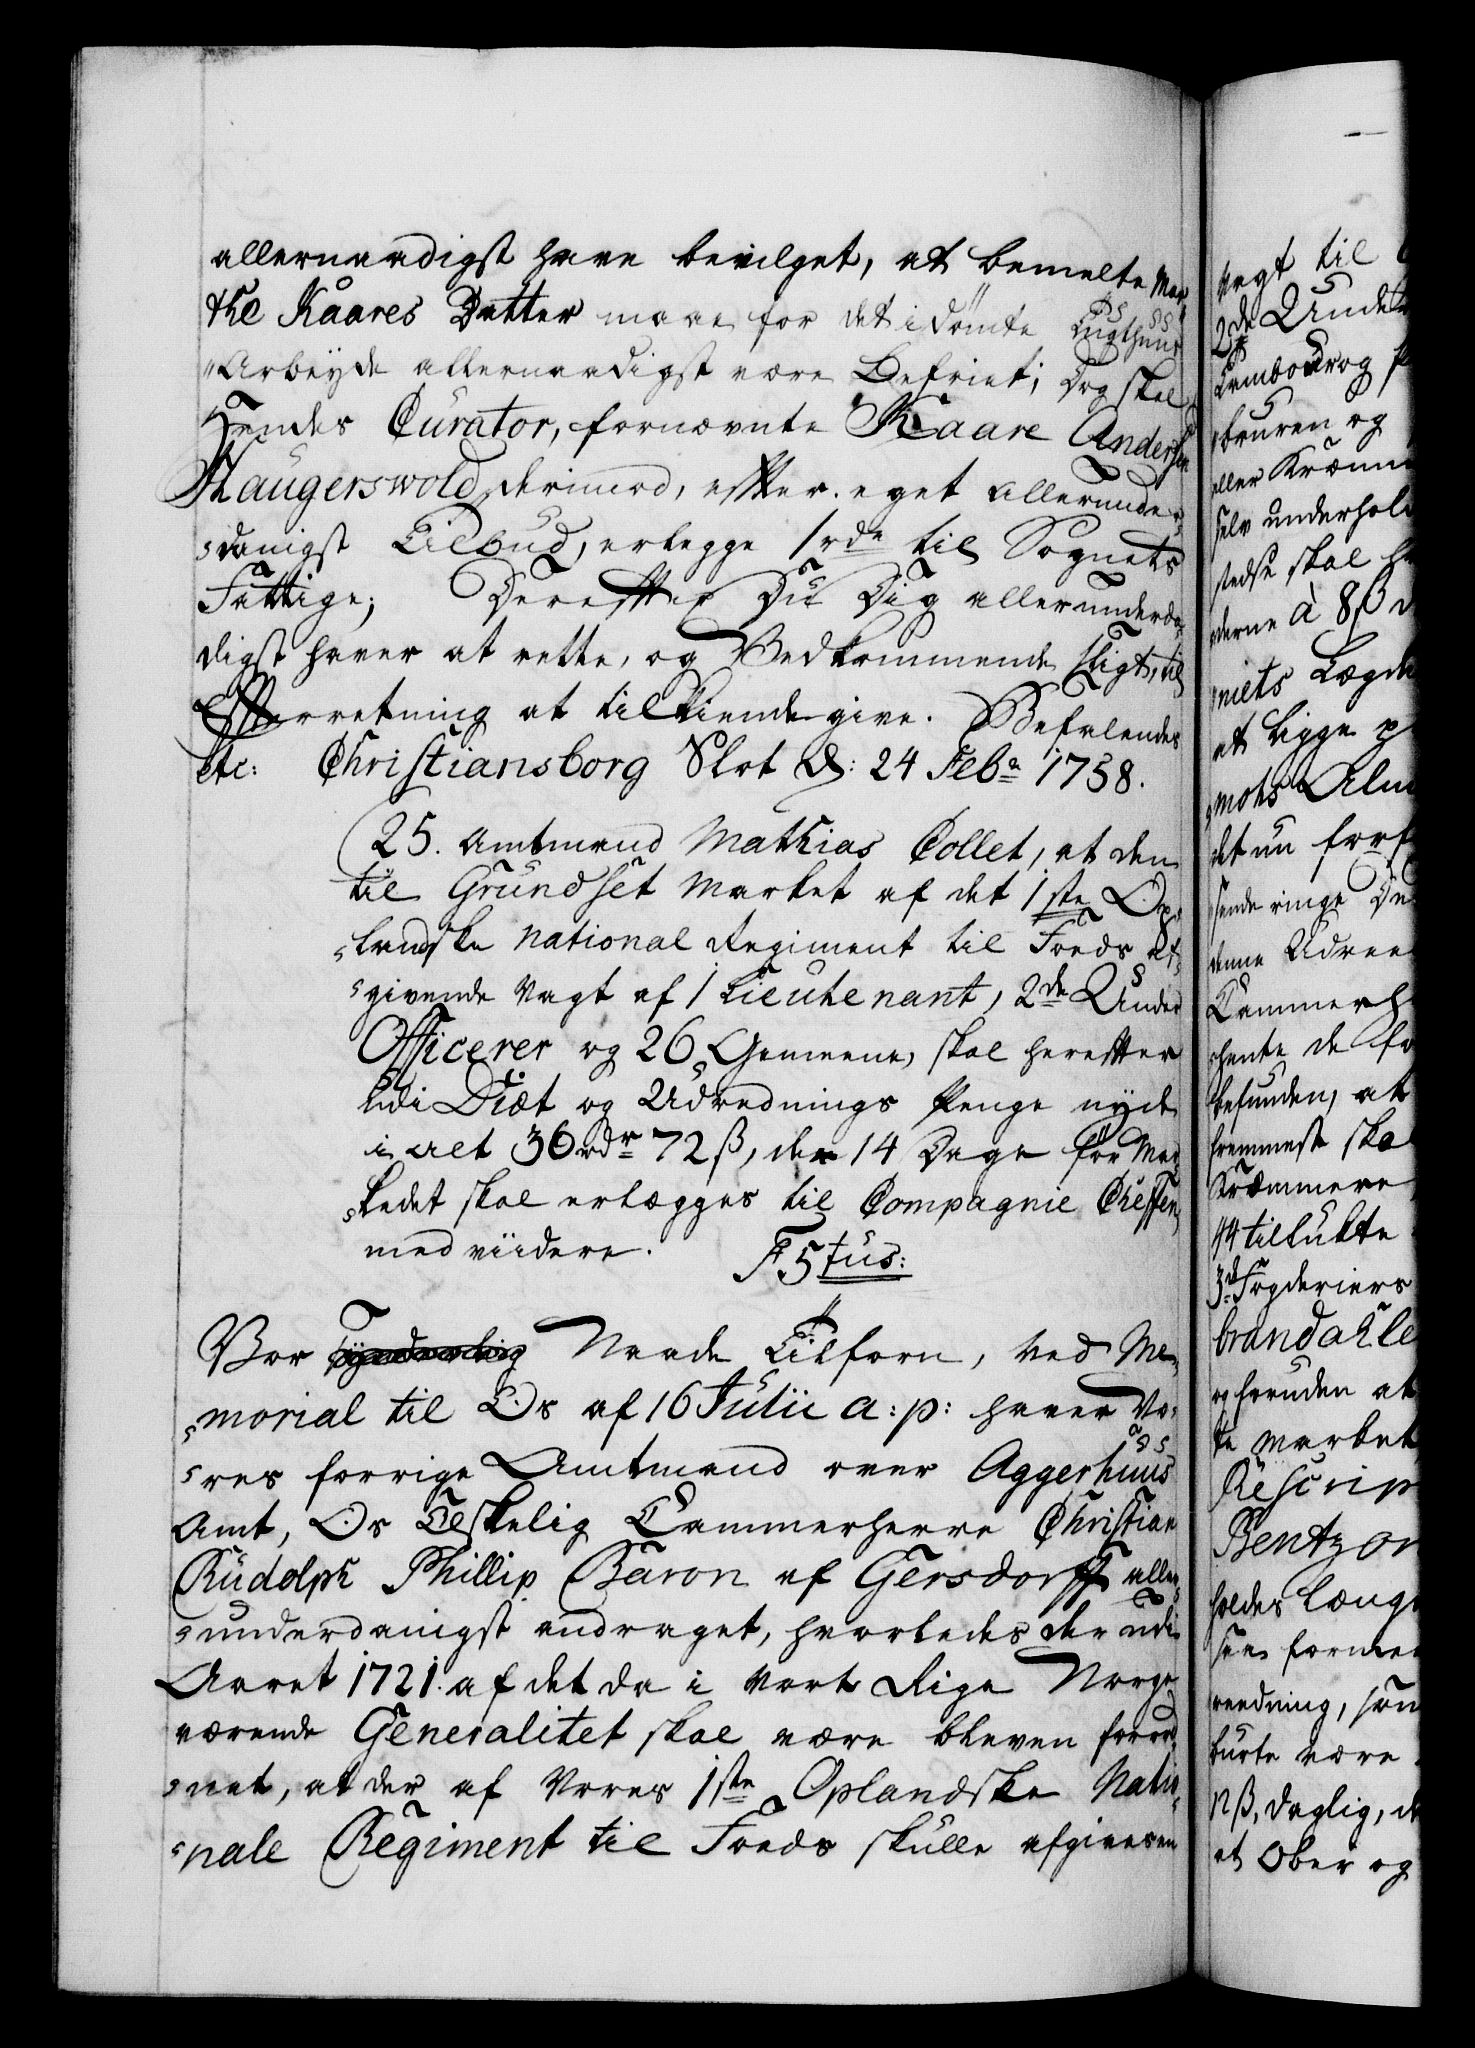 allernaadigst have bevilget, at bemelte Mar-
the Kaares Datter maae for det idömte Tugthuus
"Arbeyde allernaadigst være Befriet; Dog skal
Hendes Curator, fornævnte Kaare Andersen
Haugerswold derimod, efter eget allerunder-
danigst Tilbud, erlegge 1 rdr til Sognets
Fattige; Derefter Du Dig allerunderda-
digst haver at rette, og Vedkommende sligt, til
Efterretning at tilkiendegive. Befalendes
etc: Christiansborg Slot d: 24 Febr 1758.
25. Amtmand Mathias Collet, at den
til Grundset Market af det 1ste Op-
landske national Regiment til Foeds af-
givende Vagt af 1 Lieutenant, 2de Under
Officerer og 26 Gemeene, skal herefter
udi Diæt og Udrednings Penge nyde
i alt 36 rdr 72 ß, der 14 Dage för Mar-
kedet skal erlægges til Compagnie Cheffen
med viidere. F 5 tus:
Vor Naade Tilforn, Ved Me-
morial til Os af 16 Julii a: p: haver Vo-
res forrige Amtmand over Aggerhuus
Amt, Os Elskelig Cammerherre Christian
Rudolph Phillip Baron af Gersdorff aller-
underdanigst andraget, hvorledes der udi
Aaret 1721. af det da i Vort Rige Norge
værende Generalitet skal være bleven forord-
net, at der af Vores 1ste Oplandske Natio-
nale Regiment til Foeds skulle afgives en
Vagt til
2de Unde
Tambour og
buren og
aller Kræmm
selv underhold
stedse skal h
derne à 8 ß
niets Lægd
at ligge p
mots Alm
det nu forf
sende ringe De
denne Udree
Cammerh
hente de fo
befunden, at
fremmeste skal
Kræmmere
44 tillukte
3de Fogderiers
brandahle
og foruden at
te Market
Rescrip
Bentzon
holdes længe
sees formee
reedning, som
burte være
12 ß, daglig, d
et Ober og